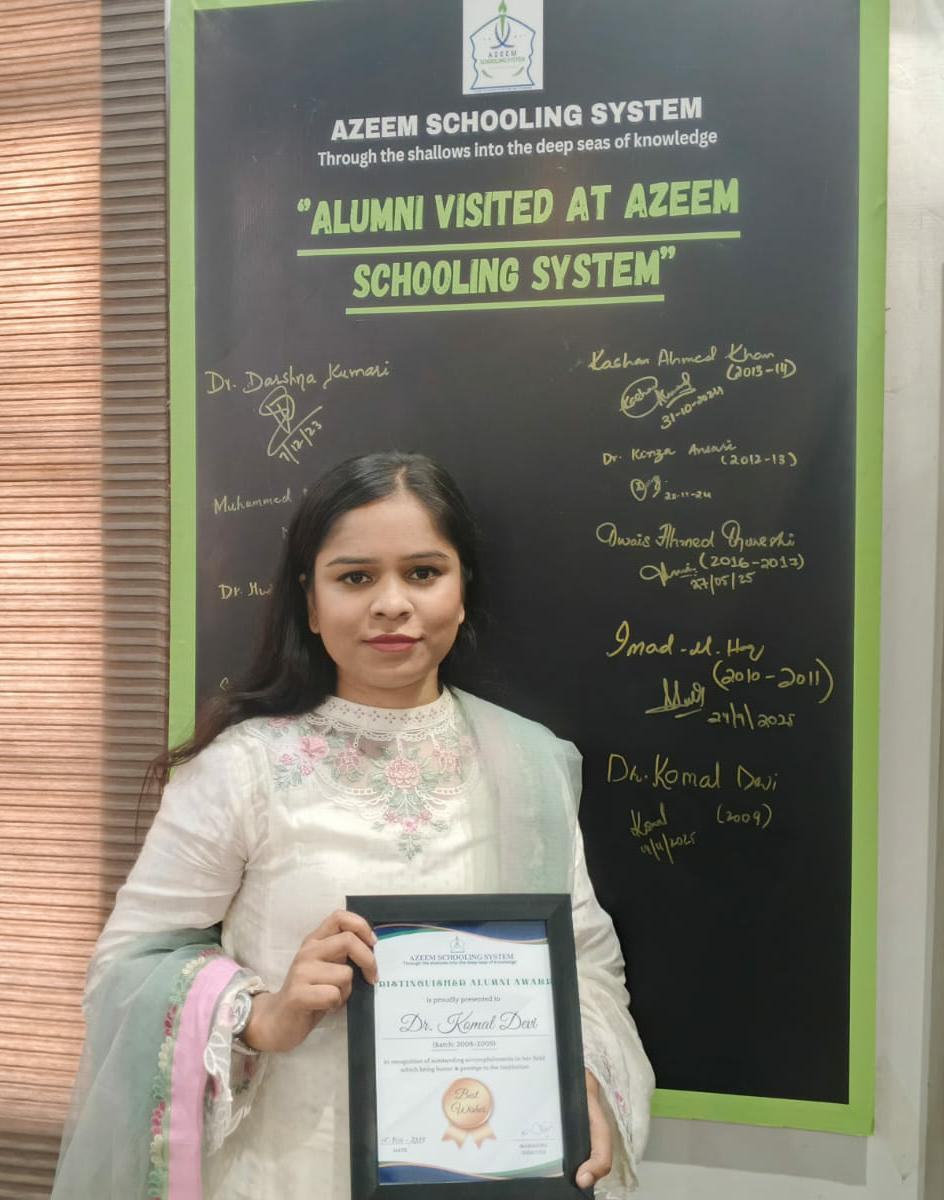 AZEEM
SCHOOLING SYSTEM
AZEEM SCHOOLING SYSTEM
Through the shallows into the deep seas of knowledge
"ALUMNI VISITED AT AZEEM
SCHOOLING SYSTEM"
Dr. Darshna Kumari
7/12/23
Muhammed
Dr.
Kashan Ahmed Khan
(2013-14)
31-10-2024
Dr. Kenza Ansari
(2012-13)
Owais Ahmed Qureshi
(2016-2017)
27/05/25
Imad-M.
(2010-2011)
Dr. Komal Devi
(2009)
Komal
AZEEM SCHOOLING SYSTEM
Through the shallows into the deep seas of knowledge
DISTINGUISHED ALUMNI AWARD
is proudly presented to
Dr. Komal Devi
(Batch: 2008-2009)
in recognition of outstanding accomplishments in her field
which bring honor & prestige to the institution
Best
Wishes
DATE
MANAGING
DIRECTOR